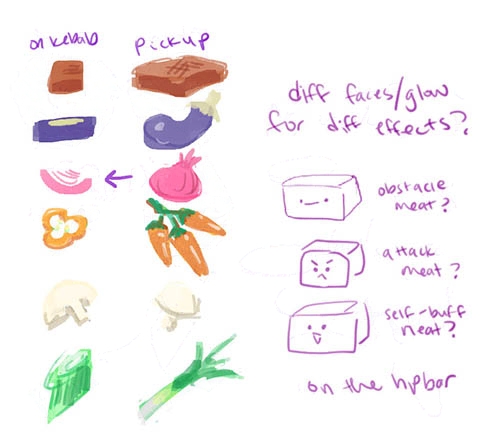 on kebab
pickup
diff faces/glow
for diff effects?
obstacle
meat?
attack
meat?
self-buff
meat?
on the hpbar